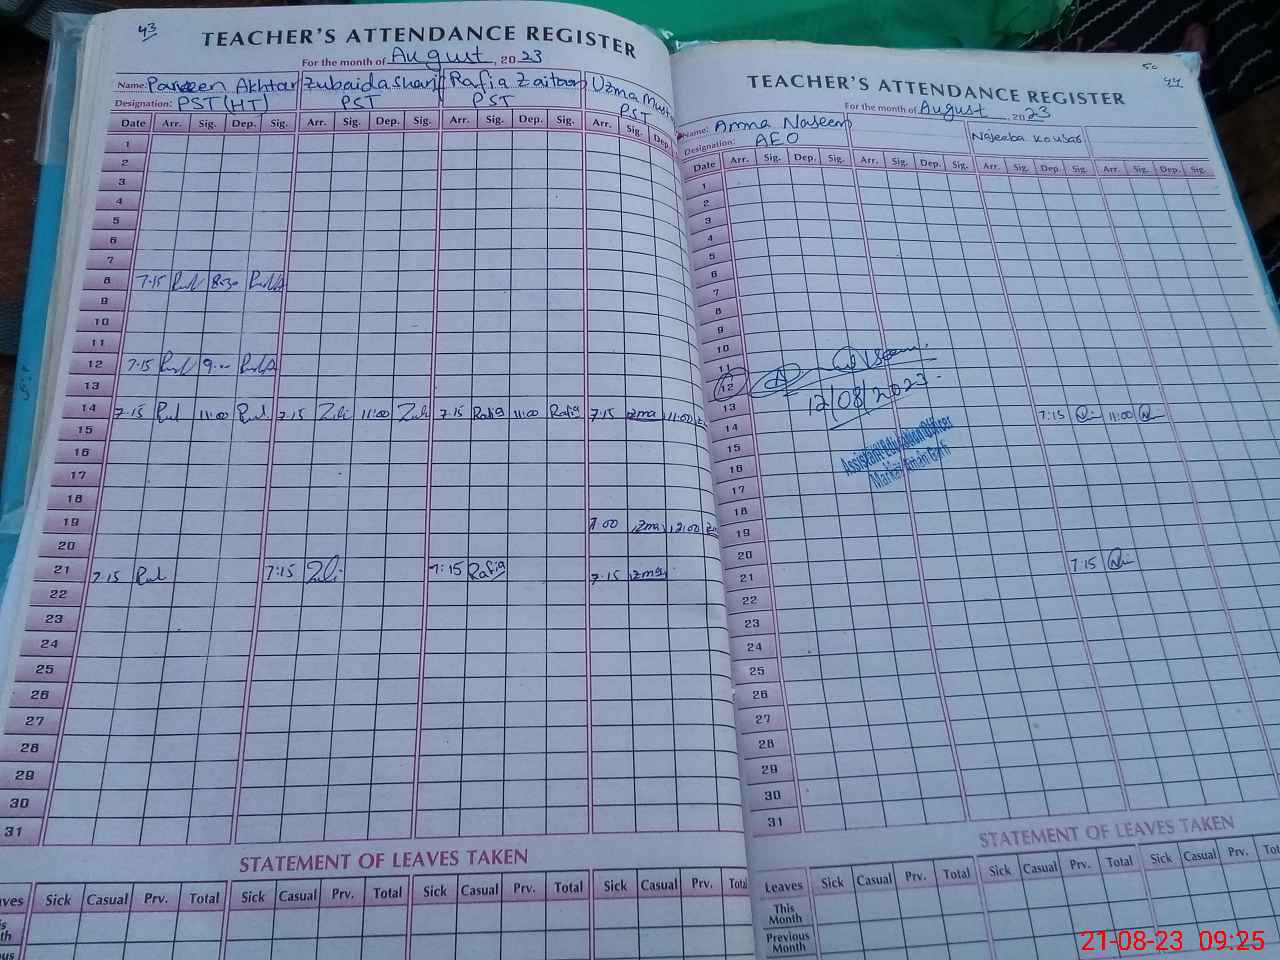 43
TEACHER'S ATTENDANCE REGISTER
For the month of August, 2023
Name: Parveen Akhtar Zubaida Sharif Rafia Zaitoon Uzma
Designation: PST (HT) PST PST PST
Date Arr. Sig. Dep. Sig. Arr. Sig. Dep. Sig. Arr. Sig. Dep. Sig. Arr. Sig. Dep.
1
2
3
4
5
6
7
8 7.15 8:30
9
10
11
12 7.15 9.00
13
14 7.15 11:00 7.15 11:00 7.15 Rafia 11:00 Rafia 7.15 11:00
15
16
17
18
19 7.00 12:00
20
21 7.15 7:15 7:15 Rafia 7.15
22
23
24
25
26
27
28
29
30
31
STATEMENT OF LEAVES TAKEN
Sick Casual Prv. Total Sick Casual Prv. Total Sick Casual Prv. Total Sick Casual Prv.
44
TEACHER'S ATTENDANCE REGISTER
For the month of August 2023
Name: Amna Naseem Najeeba Kousar
Designation: AEO
Date Arr. Sig. Dep. Sig. Arr. Sig. Dep. Sig. Arr. Sig. Dep. Sig. Arr. Sig. Dep. Sig.
1
2
3
4
5
6
7
8
9
10
11
12
12/08/2023
13
14 7:15 11:00
Assistant Education Officer
15
16
17
18
19
20
21 7:15
22
23
24
25
26
27
28
29
30
31
STATEMENT OF LEAVES TAKEN
Leaves Sick Casual Prv. Total Sick Casual Prv. Total Sick Casual Prv.
This Month
Previous Month
21-08-23 09:25